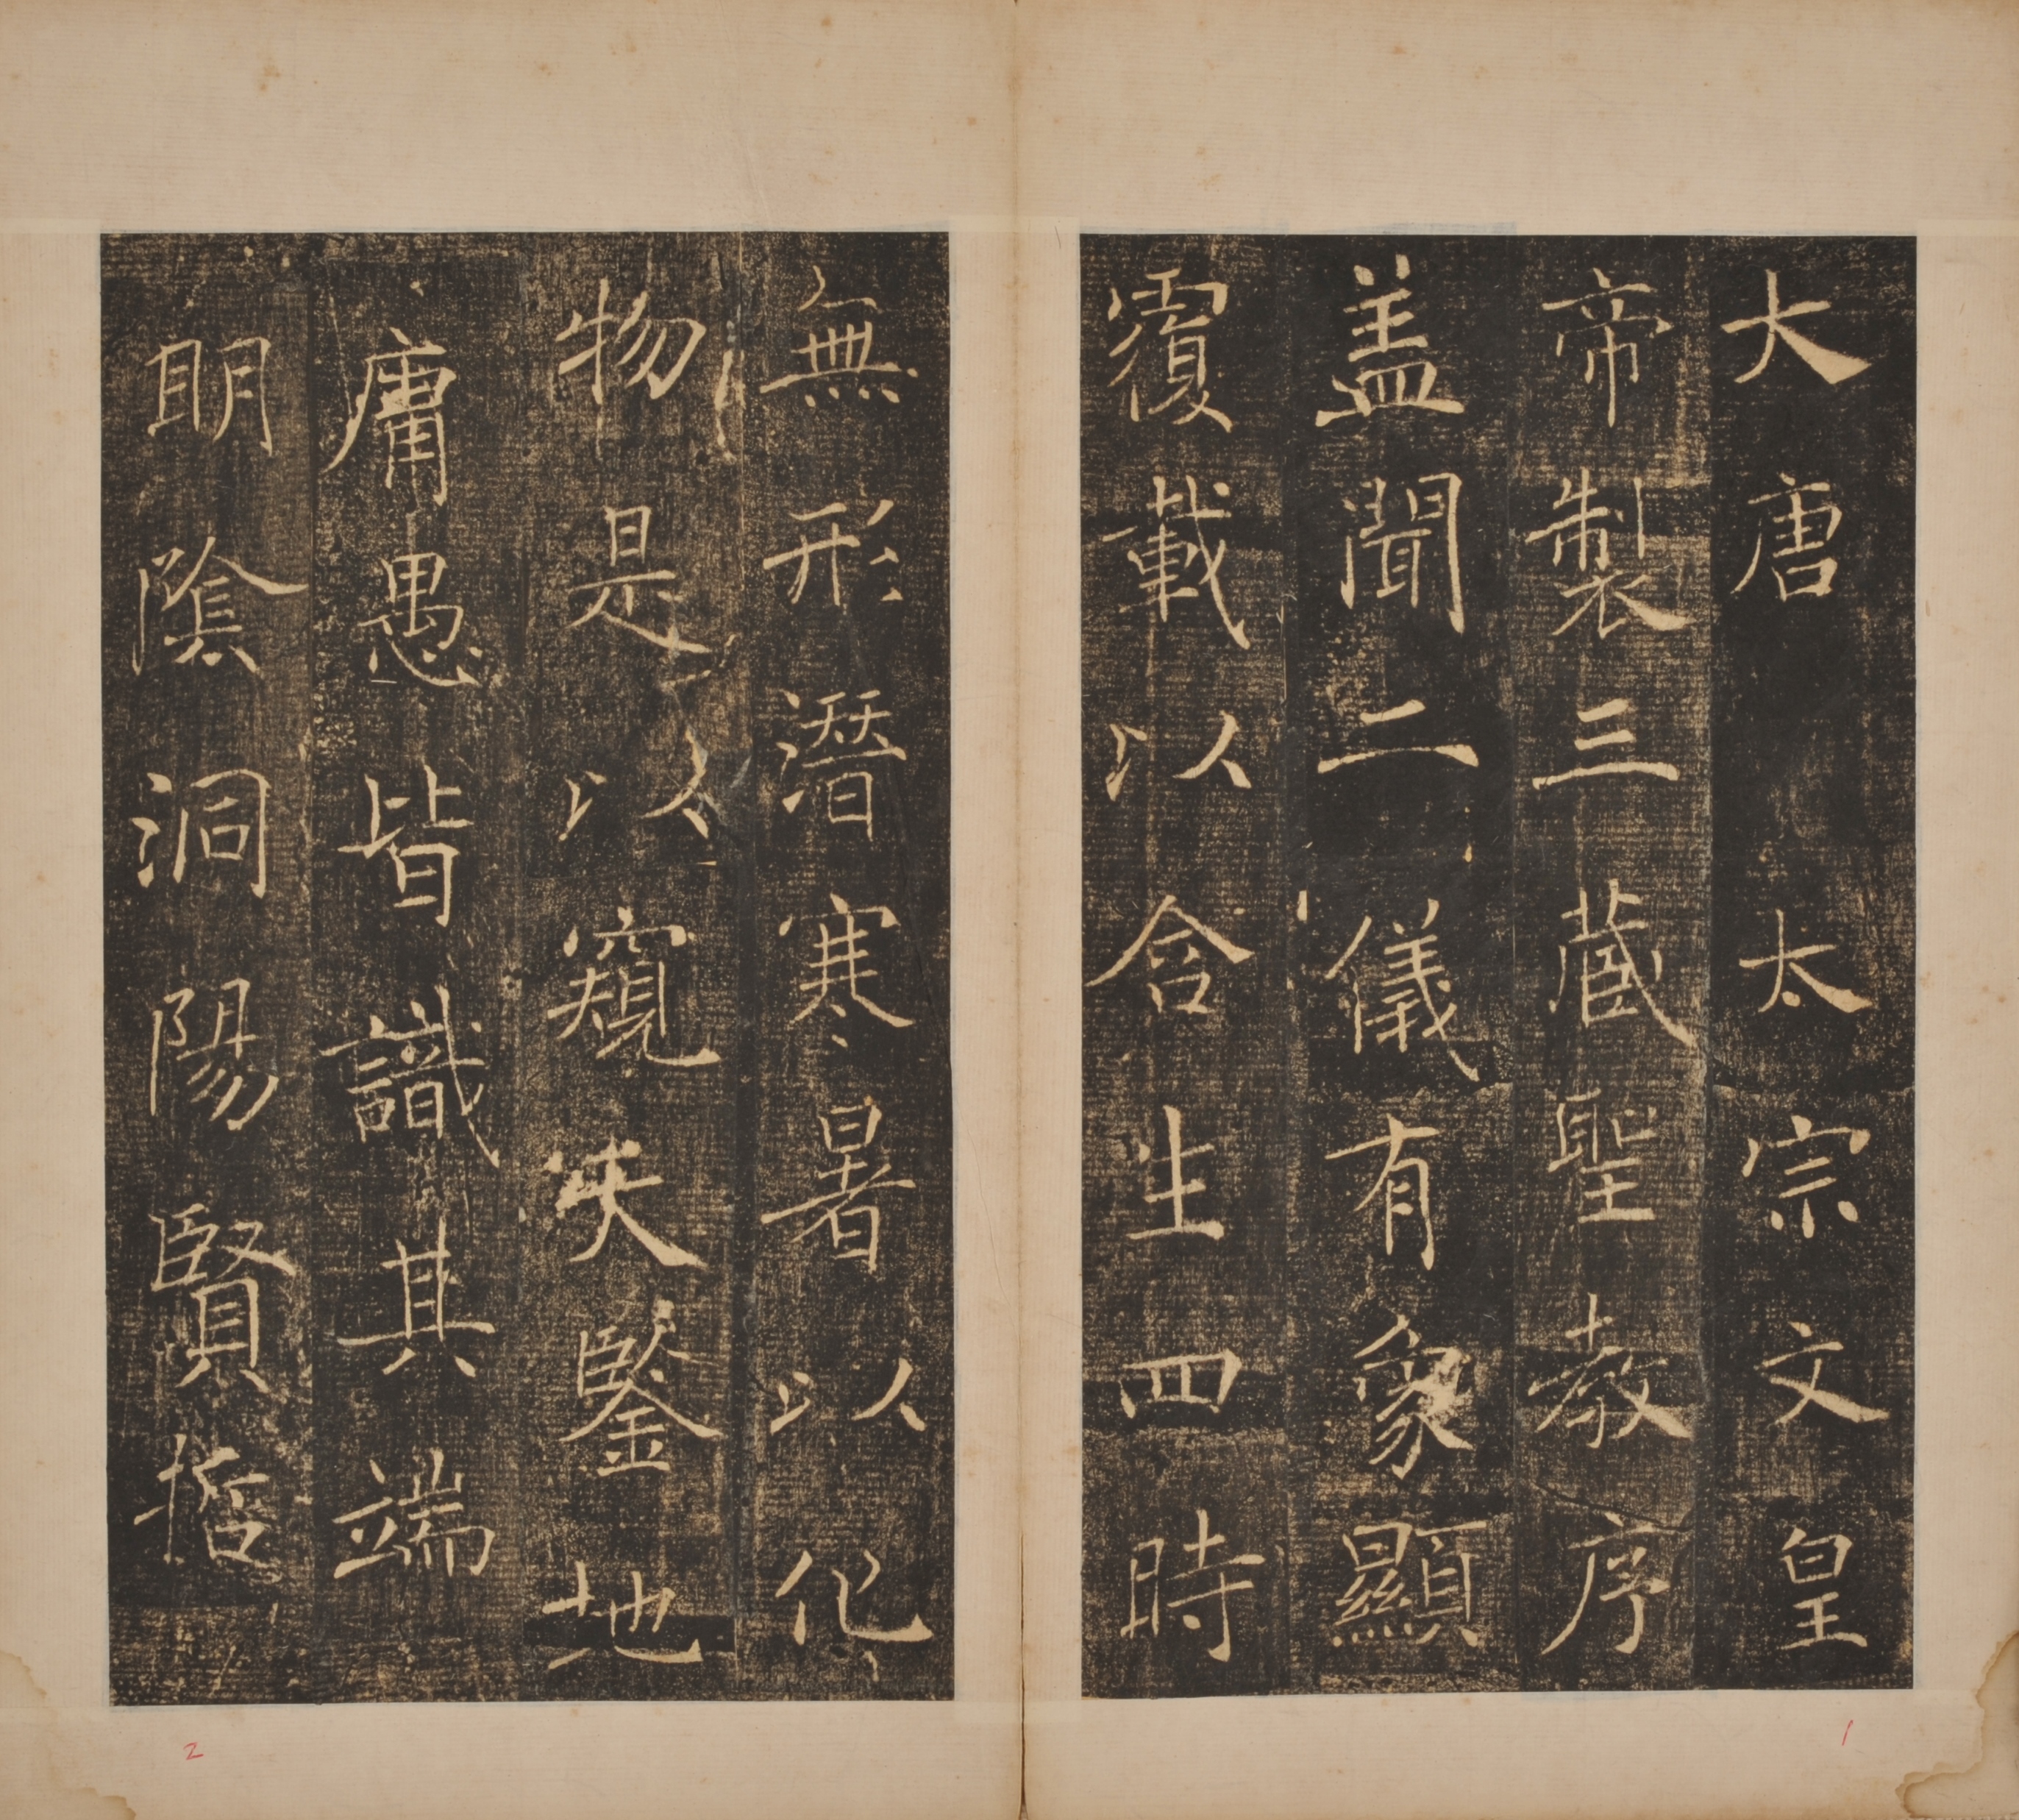 大唐太宗文皇
帝製三藏聖教序
盖聞二儀有象顯
覆載以含生四時
無形潛寒暑以化
物是以窺天鑒地
庸愚皆識其端
明陰洞陽賢哲
1
2